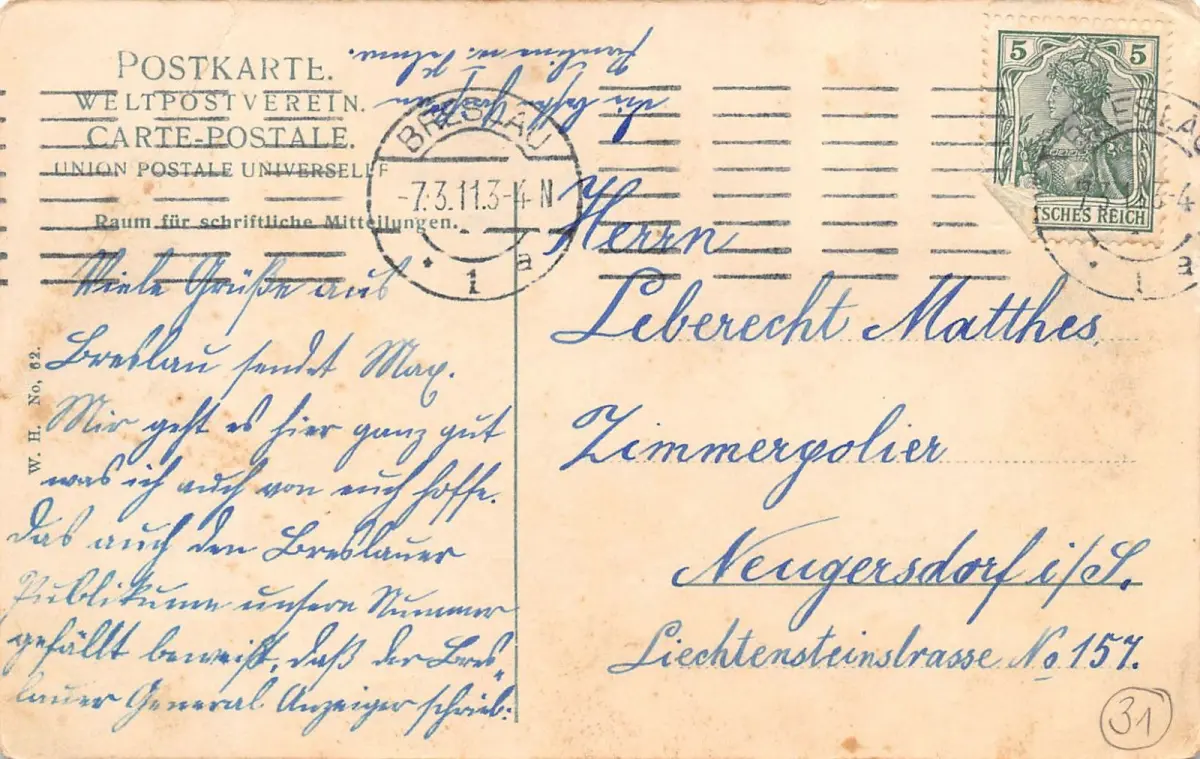 POSTKARTE.
WELTPOSTVEREIN.
CARTE-POSTALE.
UNION POSTALE UNIVERSELLE
Raum für schriftliche Mitteilungen.
W. H. No, 62.
Viele Grüße aus
Breslau sendet Max.
Mir geht es hier ganz gut
was ich auch von euch hoffe.
Das auch den Breslauer
Publikume unsere Nummer
gefällt beweißt, daß der Bres„
lauer General Anzeiger schrieb:
BRESLAU
-7.3.11.3-4 N
* 1 a
5 5
SCHES REICH
BRESLAU
3-4
* 1 a
Herrn
Leberecht Matthes
Zimmerpolier
Neugersdorf i/S.
Liechtensteinstrasse No 157.
31